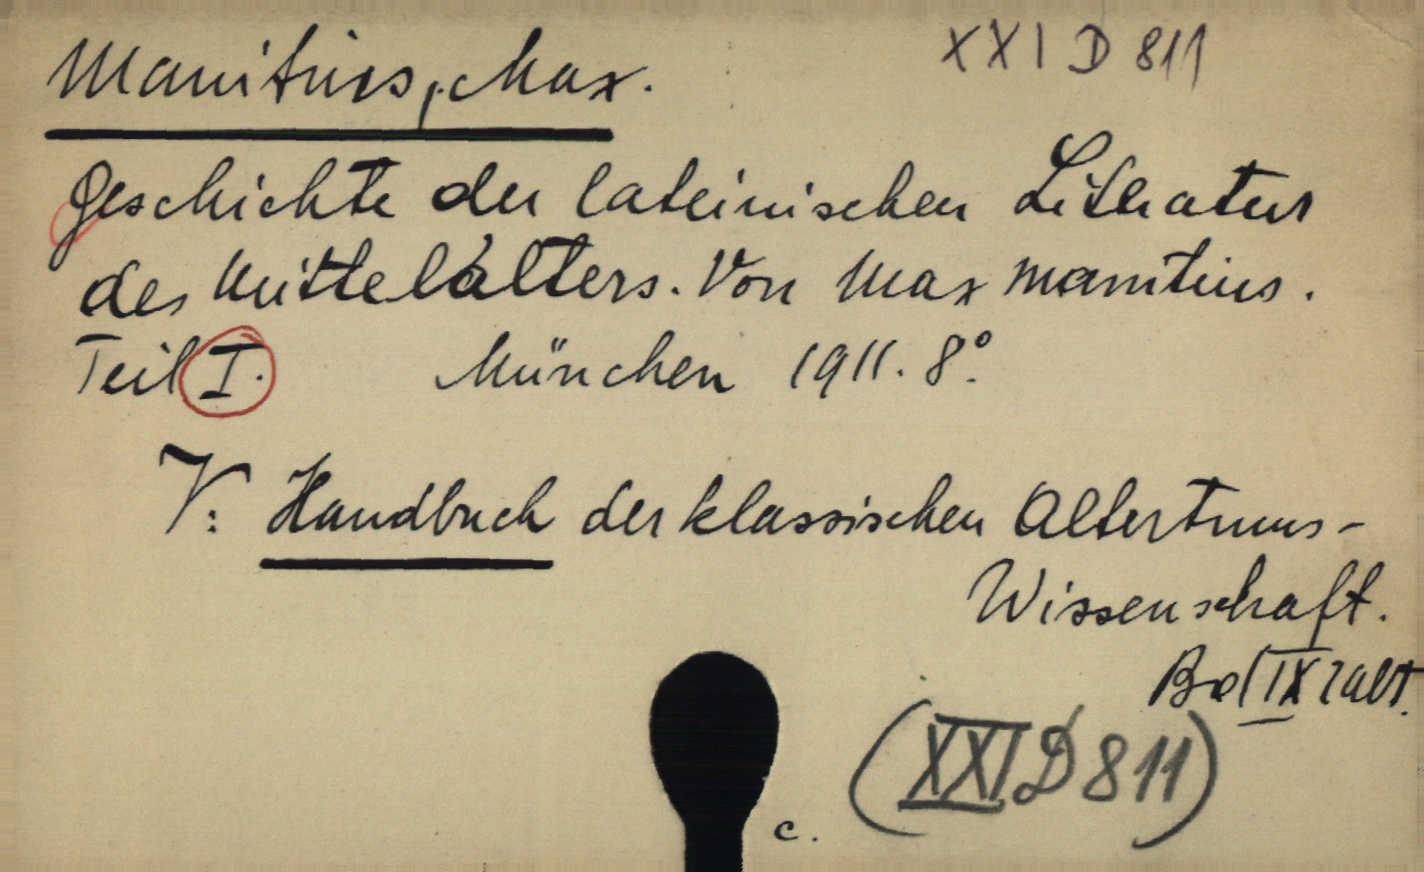 XXI D 811
Manitius, Max.
Geschichte der lateinischen Literatur
des Mittelalters. Von Max Manitius.
Teil I. München 1911. 8°.
V: Handbuch der klassischen Altertums-
Wissenschaft.
Bd IX 2 Abt.
(XXI D 811)
c.